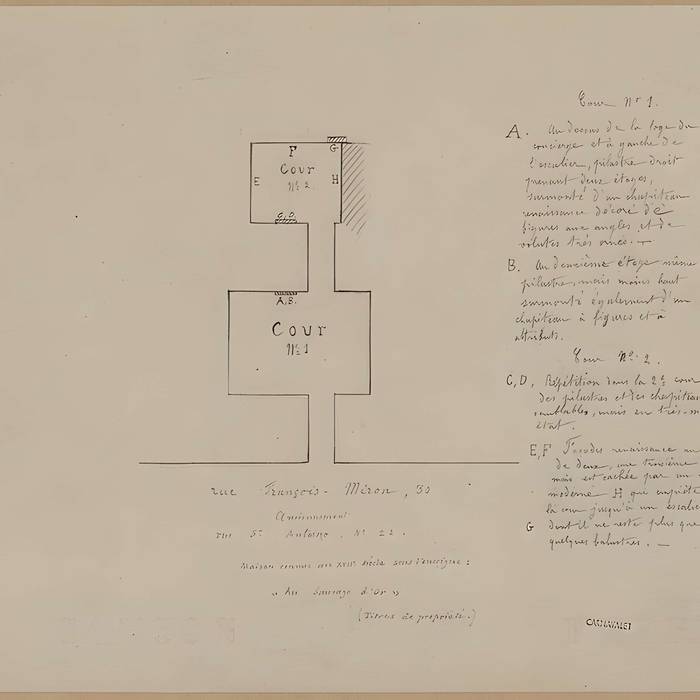 F
Cour
Nº 2
G
E
H
C, D.
A, B.
Cour
Nº 1
rue François-Miron, 30
Anciennement
rue St Antoine, Nº 22.
Maison connue au XVIIe siècle sous l'enseigne :
« Au Sauvage d'Or »
(Titres de propriété.)
Cour Nº 1.
A. Au dessus de la loge du
concierge et à gauche de
l'escalier, pilastre droit
prenant deux étages,
surmonté d'un chapiteau
renaissance décoré de
figures aux angles et de
volutes très ornée. —
B. Au deuxième étage même
pilastre, mais moins haut
surmonté également d'un
chapiteau à figures et à
attributs.
Cour Nº 2.
C, D, Répétition dans la 2e cour
des pilastres et des chapiteau
semblables, mais en très-m
état.
E, F Façades renaissance au
de deux, une troisième
mais est cachée par un
moderne H qui empiète
la cour jusqu'à un escalie
G dont il ne reste plus que
quelques balustres. —
CARNAVALET